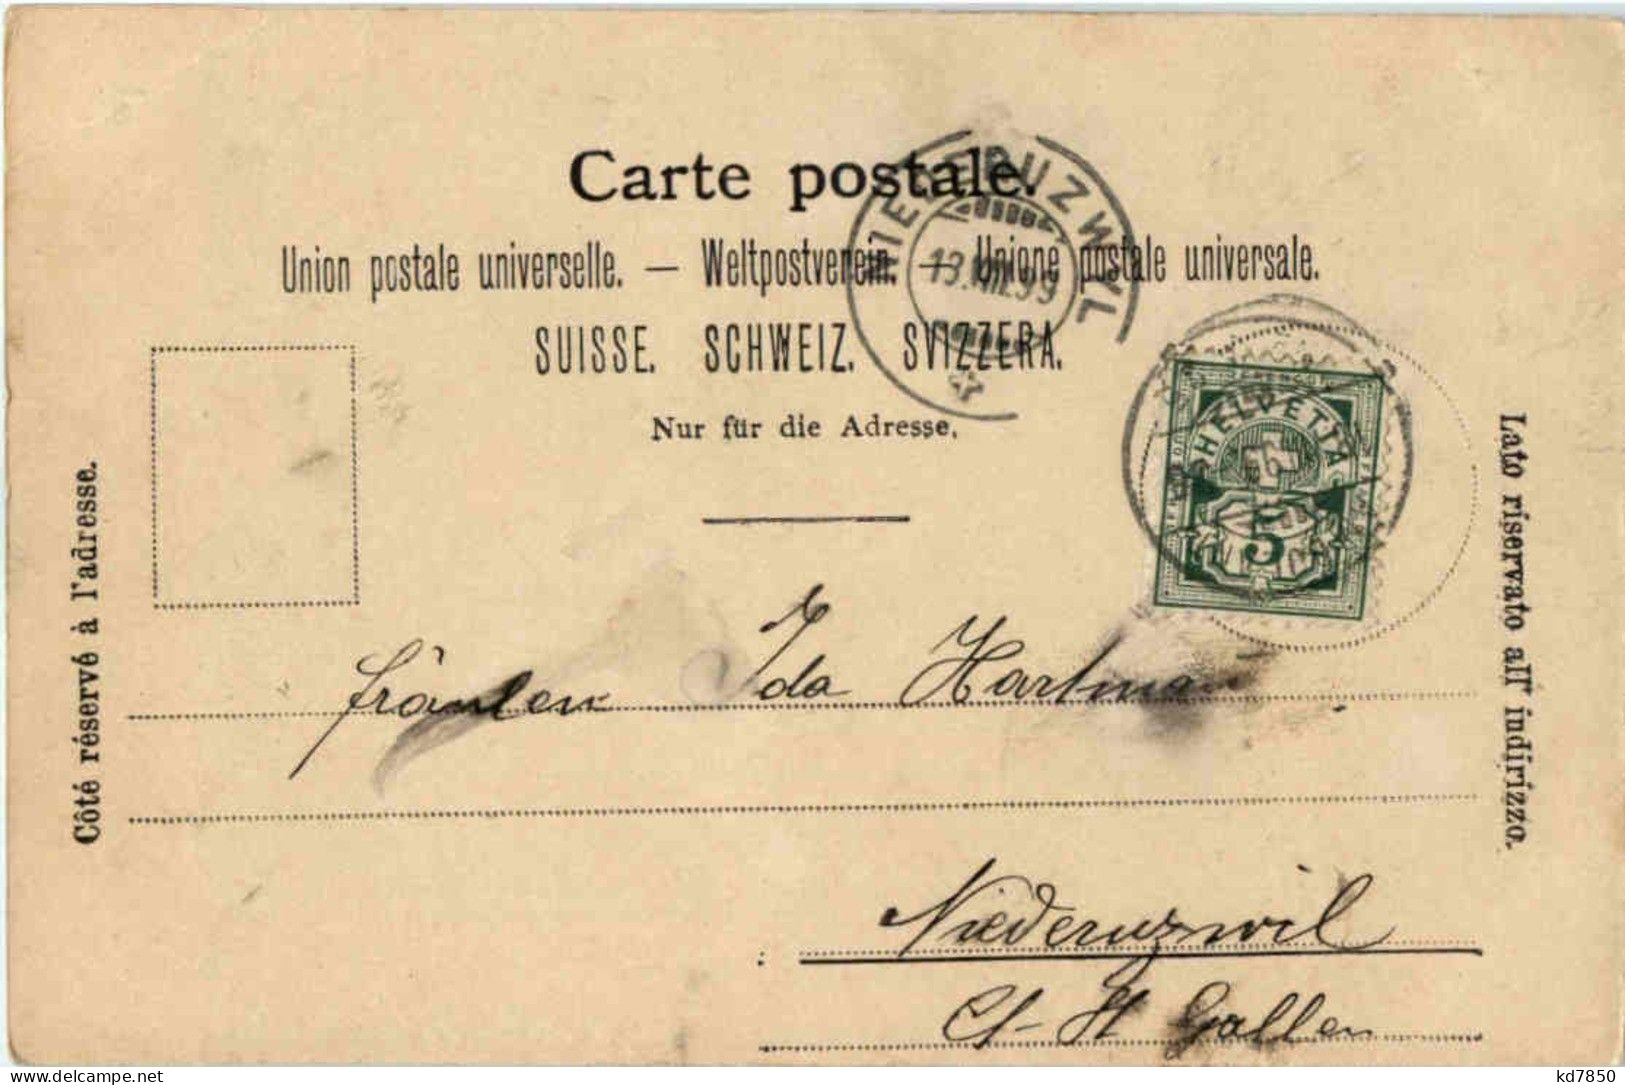 Carte postale.
Union postale universelle. — Weltpostverein. — Unione postale universale.
SUISSE. SCHWEIZ. SVIZZERA.
Nur für die Adresse.
NIEDERUZWYL
13.VIII.99
HELVETIA
5
Côté réservé à l'adresse.
Lato riservato all' indirizzo.
Fräulein Ida Hartma
Niederuzwil
Ct. St Gallen
delcampe.net
kd7850